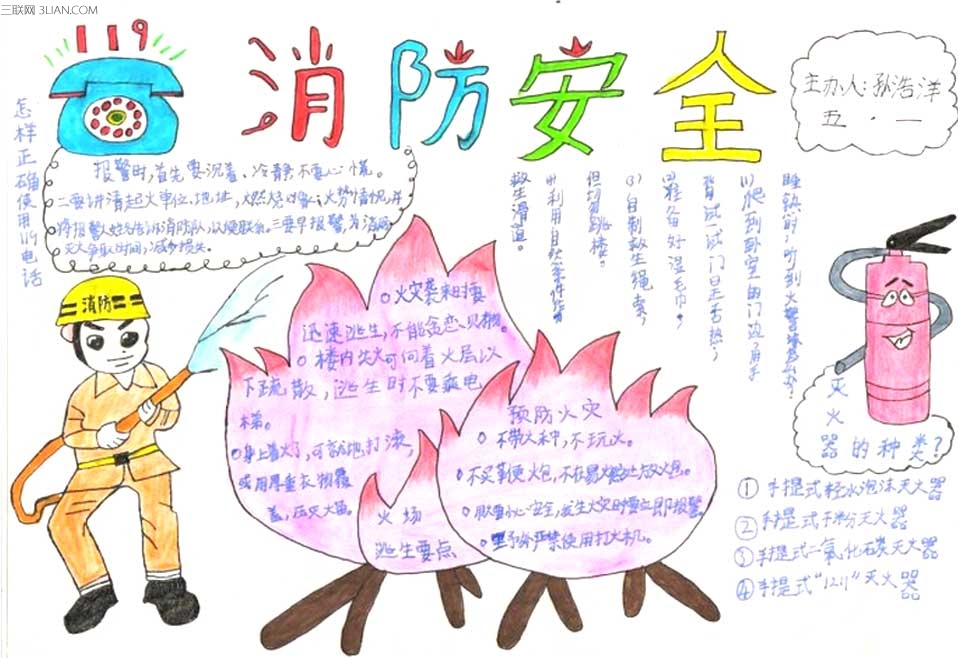 三联网 3LIAN.COM
119
消防安全
主办人:孙浩洋
五·一
怎样正确使用119电话
报警时,首先要沉着、冷静不要心慌。
二要讲清起火单位、地址,燃烧对象、火势情况,并
将报警人姓名告诉消防队,以便联系。三要早报警,为消防
灭火争取时间,减少损失。
消防
睡熟时,听到火警
(1)爬到卧室的门边,用手
背试一试门是否热;
(2)准备好湿毛巾;
(3)自制救生绳索,
但切勿跳楼。
(4)利用自然条件作
救生滑道。
火灾袭来时要
迅速逃生,不能贪恋
楼内失火可向着火层以
下疏散,逃生时不要乘电
梯。
身上着火了,可就地打滚,
或用厚重衣物覆
盖,压灭火苗。
火场
逃生要点
预防火灾
不带火种,不玩火。
不在易燃处放火包。
发生火灾时要立即报警
野外严禁使用打火机。
灭火器的种类?
①手提式轻水泡沫灭火器
②手提式干粉灭火器
③手提式二氧化石炭灭火器
④手提式“1211”灭火器